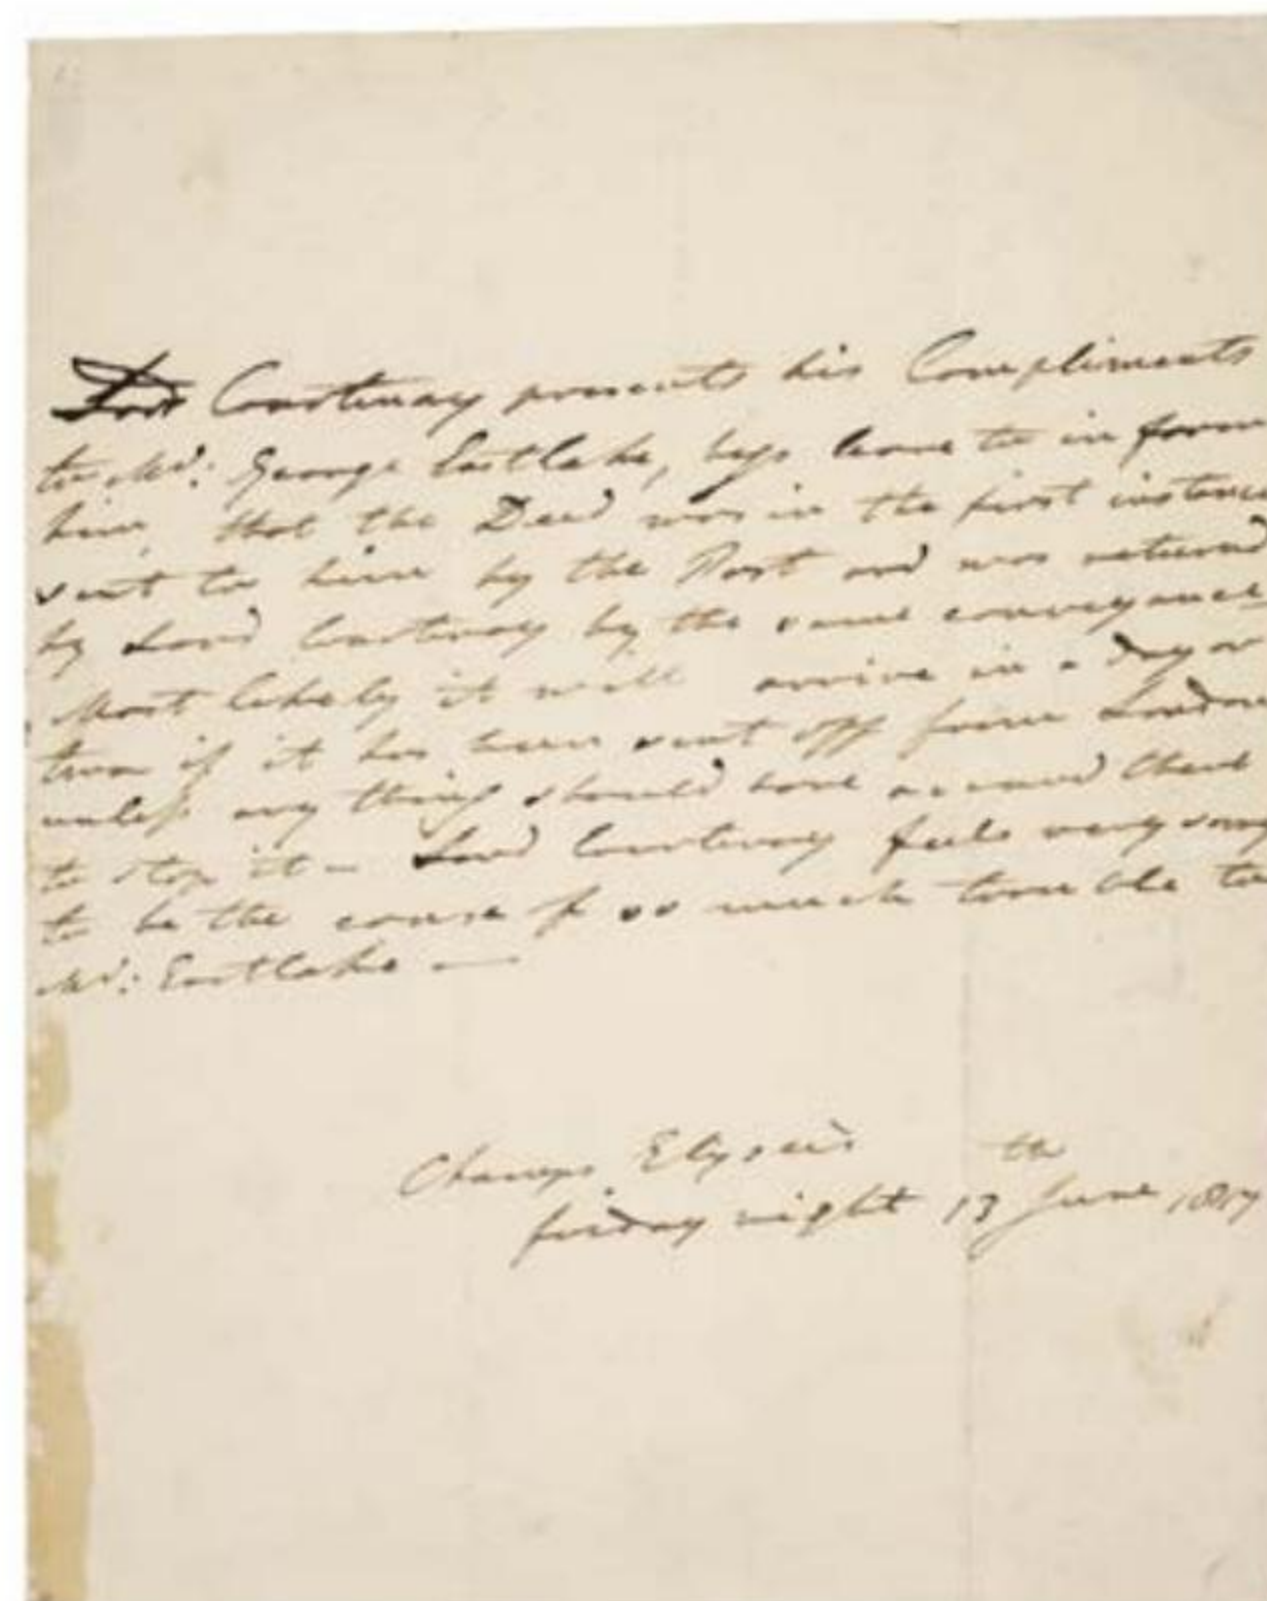 Lord Courtenay presents his Compliments
to Mr: George Eastlake, begs leave to in form
him, that the Deed was in the first instance
sent to him by the Post and was returned
by Lord Courtenay by the same conveyance
Most likely it will arrive in a day or
two if it has been sent off from London
unless any thing should have occured there
to stop it – Lord Courtenay feels very sorry
to be the cause of so much trouble to
Mr: Eastlake —
Champs Elysées
friday night 13th June 1817